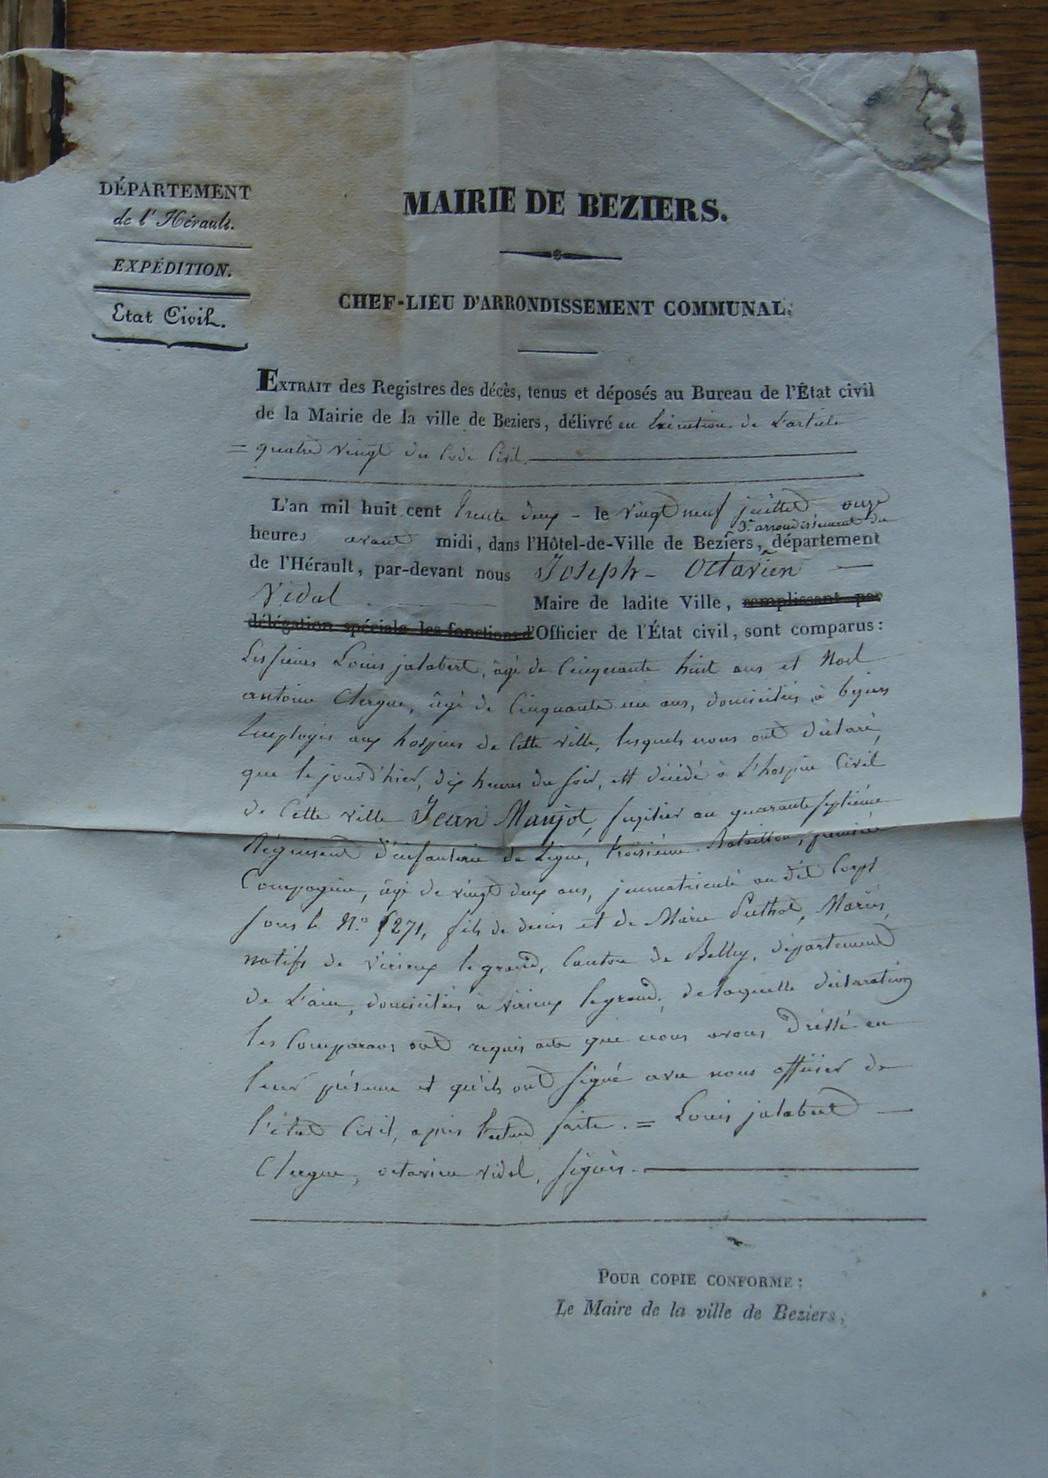 DÉPARTEMENT
de l'Hérault.
EXPÉDITION.
Etat Civil.
MAIRIE DE BEZIERS.
CHEF-LIEU D'ARRONDISSEMENT COMMUNAL.
EXTRAIT des Registres des décès, tenus et déposés au Bureau de l'État civil
de la Mairie de la ville de Beziers, délivré en Exécution de l'article
= quatre vingt du Code Civil.
L'an mil huit cent trente deux - le vingt neuf juillet onze
heures avant midi, dans l'Hôtel-de-Ville de Beziers, 3e arrondissement du département
de l'Hérault, par-devant nous Joseph - Octavien
Vidal Maire de ladite Ville, remplissant par
délégation spéciale les fonctions d'Officier de l'État civil, sont comparus :
Les sieurs Louis jalabert, âgé de Cinquante huit ans et Noel
antoine Clergue, âgé de Cinquante un ans, domiciliés à beziers
Employés aux hospices de Cette ville, lesquels nous ont déclaré,
que le jour d'hier, dix heures du soir, est décédé à L'hospice Civil
de Cette ville Jean Manjot, fusilier au quarante septième
Régiment d'infanterie de Ligne, troisième Bataillon, première
Compagnie, âgé de vingt deux ans, immatriculé au dit Corps
sous le No 5271, fils de denis et de Marie Puthod, Mariés,
natifs de Virieux legrand, Canton de Belley, département
de L'ain, domiciliés à virieux legrand, de laquelle déclaration
les Comparans ont requis acte que nous avons Dréssé en
leur présence et qu'ils ont signé avec nous officier de
l'état Civil, après lecture faite. = Louis jalabert
Clergue, octavien vidal, signés.
POUR COPIE CONFORME :
Le Maire de la ville de Beziers,